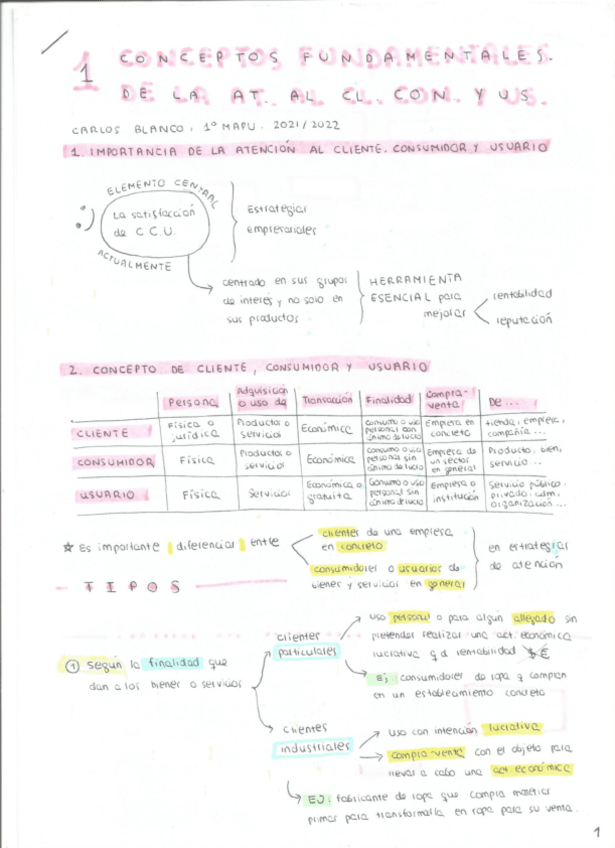 1 CONCEPTOS FUNDAMENTALES.
DE LA AT. AL CL. CON. Y US.
CARLOS BLANCO, 1º MAPU. 2021/2022
1. IMPORTANCIA DE LA ATENCIÓN AL CLIENTE. CONSUMIDOR Y USUARIO
ELEMENTO CENTRAL
:)
La satisfacción
de C.C.U.
ACTUALMENTE
Estrategias
empresariales
centrado en sus grupos
de interés y no solo en
sus productos
HERRAMIENTA
ESENCIAL para
mejorar
rentabilidad
reputación
2. CONCEPTO DE CLIENTE, CONSUMIDOR Y USUARIO
Persona
Adquisición
o uso de
Transacción
Finalidad
Compra-
venta
De ...
CLIENTE
Física o
jurídica
Productos o
servicios
Económica
consumo o uso
personal con
ánimo de lucro
Empresa en
concreto
tienda, empresa,
compañía...
CONSUMIDOR
Física
Productos o
servicios
Económica
consumo o uso
personal sin
ánimo de lucro
Empresa de
un sector
en general
Producto, bien,
servicio...
USUARIO
Física
Servicios
Económica o
gratuita
Consumo o uso
personal sin
ánimo de lucro
Empresa o
institución
Servicio público,
privado, adm,
organización...
☆ Es importante diferenciar entre
clientes de una empresa
en concreto
consumidores o usuarios de
bienes y servicios en general
en estrategias
de atención
TIPOS
① Según la finalidad que
dan a los bienes o servicios
clientes
particulares
uso personal o para algún allegado sin
pretender realizar una act. económica
lucrativa q d rentabilidad $€
Ej: consumidores de ropa q compran
en un establecimiento concreto
clientes
industriales
uso con intención lucrativa
compra-venta con el objeto para
llevar a cabo una act. económica
EJ: fabricante de ropa que compra materias
primas para transformarla en ropa para su venta.
1